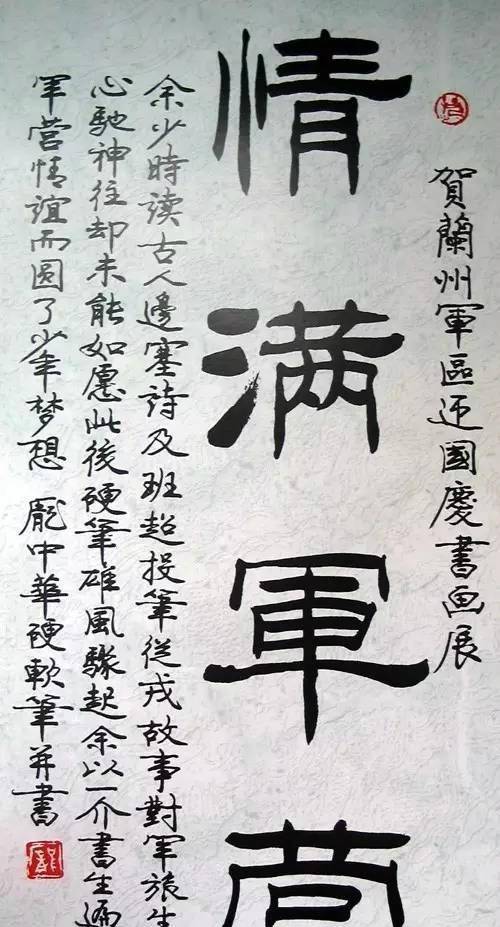 賀蘭州軍區迎國慶書画展
情满軍营
余少時读古人邊塞詩及班超投筆從戎故事對軍旅生
心馳神往却未能如愿此後硬筆雄風驟起余以一介書生遍
軍营情誼而圆了少年梦想 龐中華硬軟筆并書